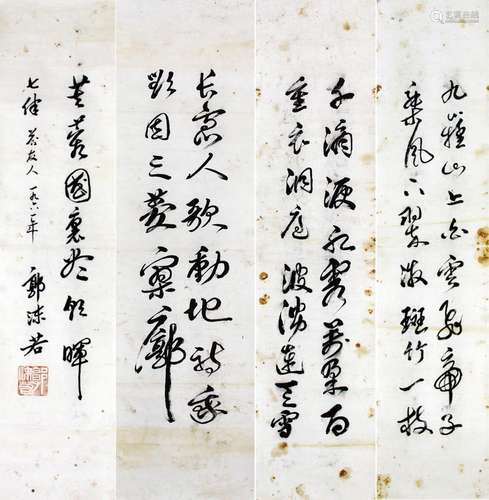 九嶷山上白雲飛帝子
乘風下翠微斑竹一枝
千滴淚紅霞萬朵百
重衣洞庭波湧連天雪
长島人歌動地詩我
欲因之夢寥廓
芙蓉國裏盡朝暉
七律 答友人 一九六 年 郭沫若